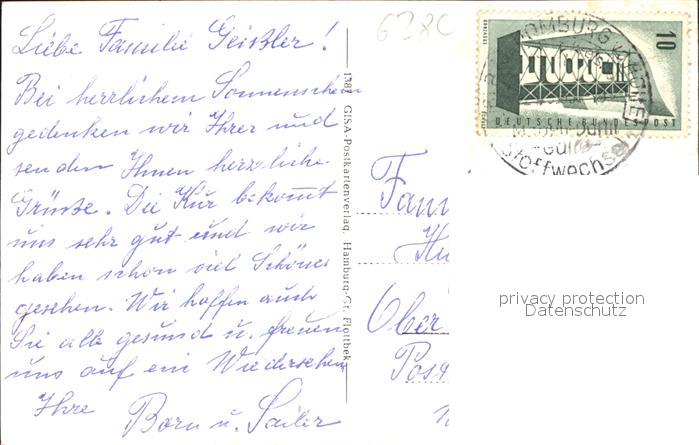 Liebe Familie Geißler!
Bei herrlichem Sonnenschein
gedenken wir Ihrer und
senden Ihnen herzliche
Grüße. Die Kur bekommt
uns sehr gut und wir
haben schon viel Schönes
gesehen. Wir hoffen auch
Sie alle gesund u. freuen
uns auf ein Wiedersehen
Ihre Born u. Sailer
GISA-Postkartenverlag, Hamburg-Gr. Flottbek
638C
10
DEUTSCHE BUNDESPOST
HOMBURG v.d. HÖHE
Stoffwechsel
Fam
Hu
Ober
Post
privacy protection
Datenschutz